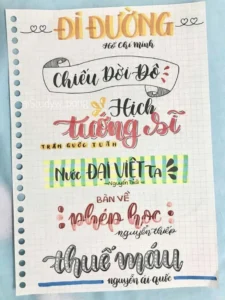 ĐI ĐƯỜNG
Hồ Chí Minh
Chiếu Dời Đô
Hịch
tướng sĩ
TRẦN QUỐC TUẤN
Nước ĐẠI VIỆT TA
nguyễn trãi
BÀN VỀ
phép học
nguyễn thiếp
thuế máu
nguyễn ái quốc